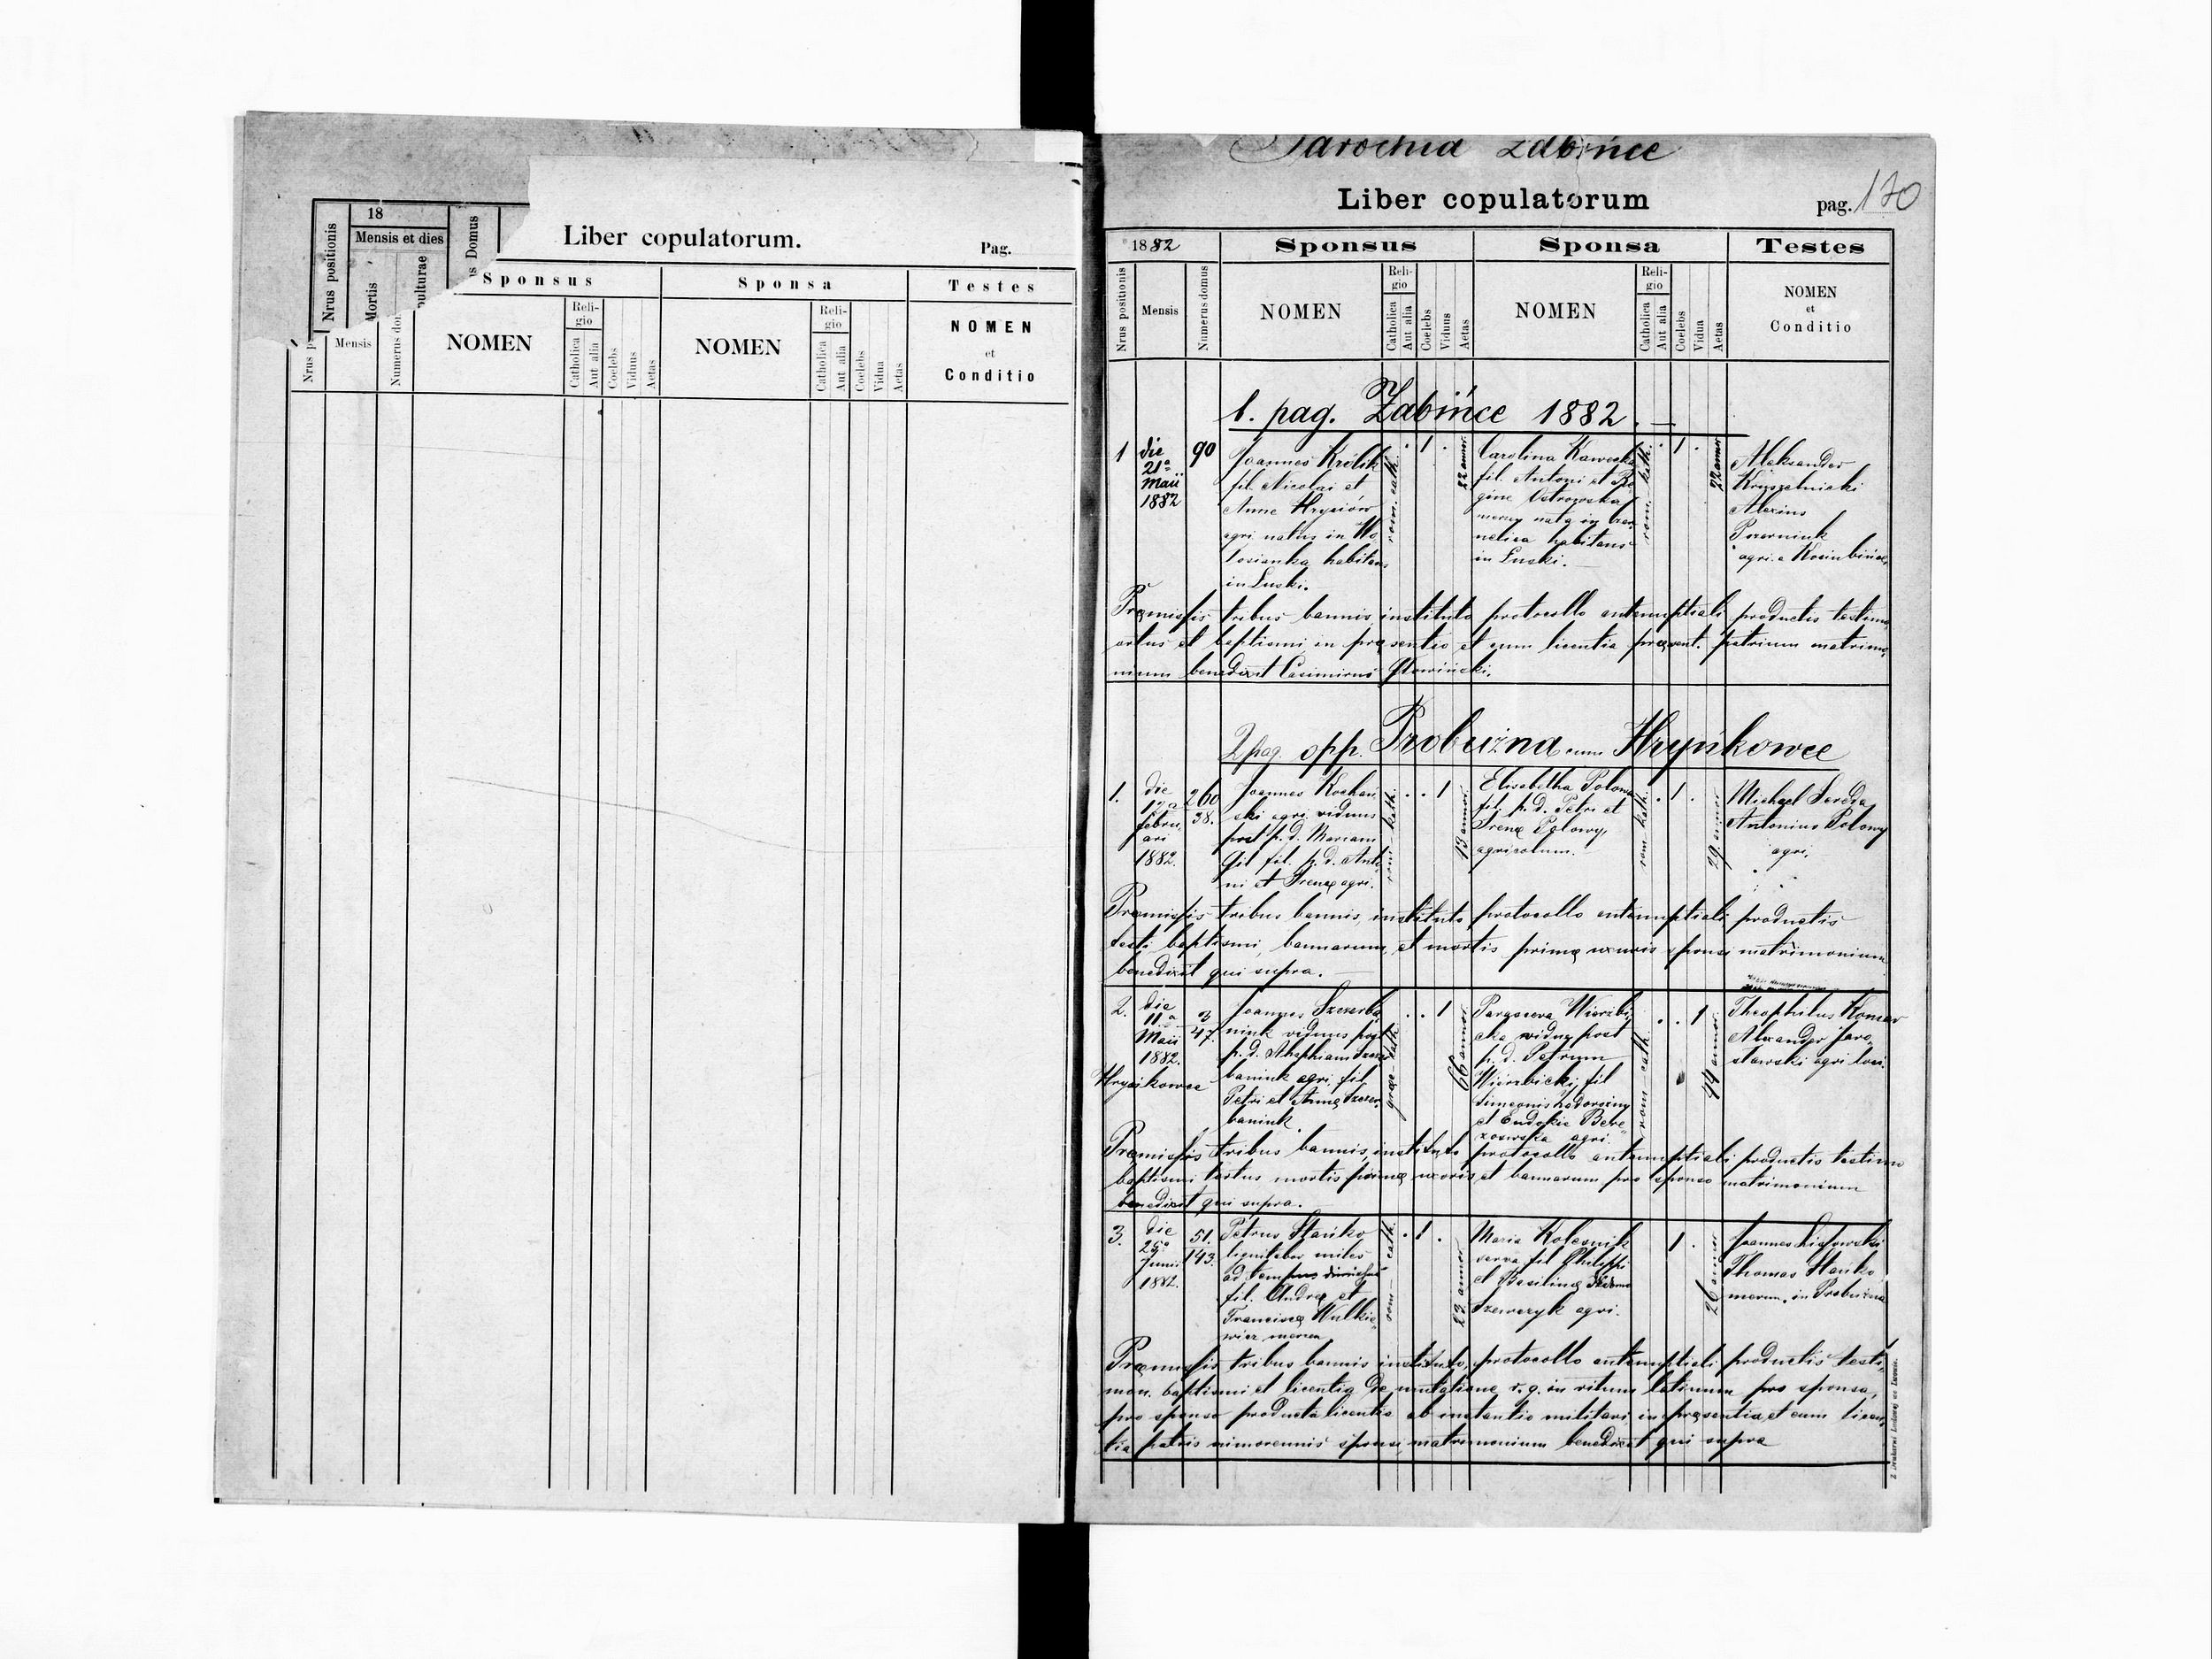 18
Nrus positionis
Mensis et dies
Mortis
Domus
Liber copulatorum.
Pag.
Sponsus
Sponsa
Testes
Mensis
NOMEN
Reli-
gio
Catholica
Aut alia
Coelebs
Viduus
Aetas
NOMEN
Reli-
gio
Catholica
Aut alia
Coelebs
Vidua
Aetas
NOMEN
et
Conditio
Parochia Żabińce
Liber copulatorum
pag. 170
1882
Sponsus
Sponsa
Testes
Nrus positionis
Mensis
Numerus domus
NOMEN
Reli-
gio
Catholica
Aut alia
Coelebs
Viduus
Aetas
NOMEN
Reli-
gio
Catholica
Aut alia
Coelebs
Vidua
Aetas
NOMEN
et
Conditio
1. pag. Żabińce 1882.
1
die
21a
Maii
1882
90
Joannes Królik
fil. Nicolai et
Annae Hryciów
agri. natus in Wo
losianka habitans
in Suski.
rom. cath.
1
22 annor
Carolina Kawecka
fil. Antoni et Re
gine Ostrowska
habitans
in Suski.
rom. cath.
1
22 annor
Aleksander
Kruszelnicki
Alexius
agri.
Praemissis tribus bannis, instituto protocollo antenuptiali productis testimo
ortus et baptismi in praesentia et cum licentia praesent. patrium matrimo
nium benedixit Casimirus
2 pag. opp. Probużna cum Hryńkowce
1.
die
Febru
ari
1882.
260
38.
Joannes Kochań
ski agri. viduus
post p.d. Mariam
Gil fil. p.d. Anto
ni et Irenae agri.
rom. cath.
1
Elisabetha Polowa
fil. p.d. Petri et
Irenae Polowy,
agricolum.
rom. cath.
1
29 annor
Michael Sereda
Antonius Polowy
agri.
Praemissis tribus bannis, instituto protocollo antenuptiali productis
testi baptismi, bannorum, et mortis primae uxoris sponsi matrimonium
benedixit qui supra.
2.
die
11a
Maii
1882.
Hryńkowce
3
47.
Joannes Szczerba
niuk viduus post
p.d.
baniuk agri. fil.
Petri et Annae Szczer
baniuk.
graec. cath.
1
66 annor
Parasceva Wierzbi
cka vidua post
p.d. Petrum
Wierzbicki, fil
Simeonis
et Eudokia Bere
zowska agri.
rom. cath.
1
44 annor
Theophilus Komar
Alexander Jaro
slawski agri. loci.
Praemissis tribus bannis, instituto protocollo antenuptiali productis testimo
baptismi testus mortis primae uxoris et bannorum pro sponso matrimonium
benedixit qui supra.
3.
die
25a
Junii
1882.
51.
143.
Petrus Stańko
miles
ad tempus
fil. Andreae et
Franciscae Wulkie
wicz
rom. cath.
1
23 annor
Maria Kolesnik
serva fil Philippi
et Basilinae
Szewczyk agri.
1
26 annor
Joannes
Thomas Stańko
in Probużna
Praemissis tribus bannis instituto protocollo antenuptiali productis testi
mon. baptismi et licentia de mutatione r.g. in ritum latinum pro sponsa,
pro sponso producta licentia ab instantia militari, in praesentia et cum licen
tia patris minorennis sponsi, matrimonium benedixit qui supra